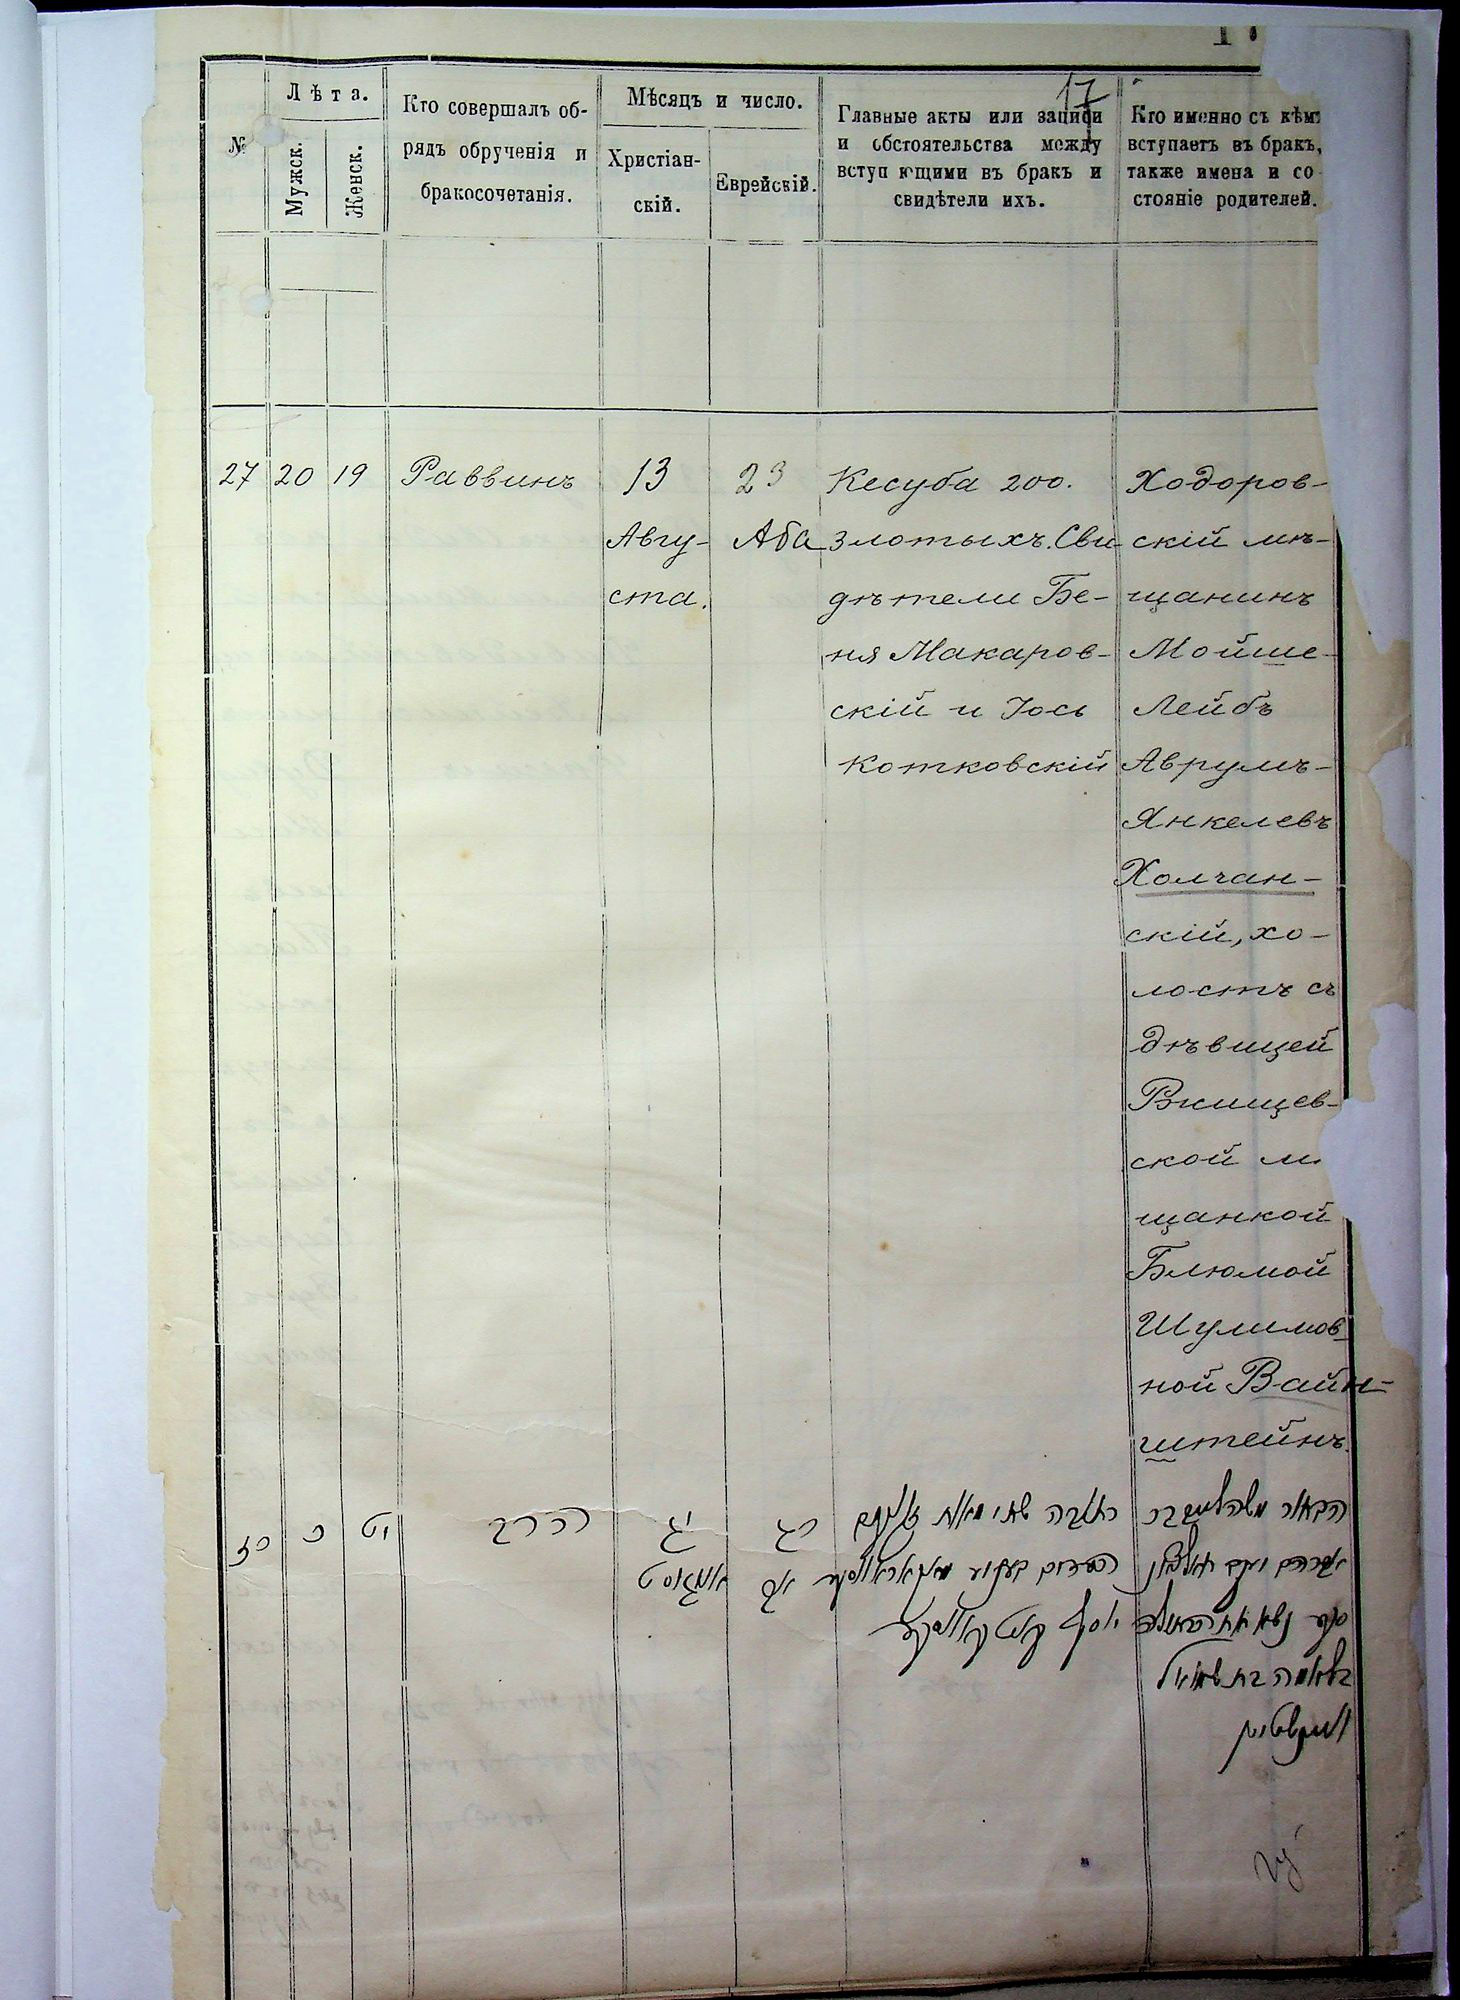 17
№
Лѣта.
Мужск.
Женск.
Кто совершалъ об-
рядъ обрученія и
бракосочетанія.
Мѣсяцъ и число.
Христіан-
скій.
Еврейскій.
Главные акты или записи
и обстоятельства между
вступающими въ бракъ и
свидѣтели ихъ.
Кто именно съ кѣмъ
вступаетъ въ бракъ,
также имена и со
стояніе родителей.
27
20
19
Раввинъ
13
Авгу-
ста.
23
Аба
Кесуба 200.
злотыхъ. Сви
дѣтели Бе-
ня Макаров-
скій и Іось
Котковскій
Ходоров-
скій мѣ-
щанинъ
Мойше-
Лейбъ
Аврумъ-
Янкелевъ
Холчан-
скій, хо-
лостъ съ
дѣвицей
Ржищев-
ской м
щанкой
Блюмой
Шулимов
ной Вайн-
штейнъ.
כז
כ
יט
הרב
יג
אווגוסט
כג
אב
כתובה שתי מאות
יוסף
אברהם יעקב